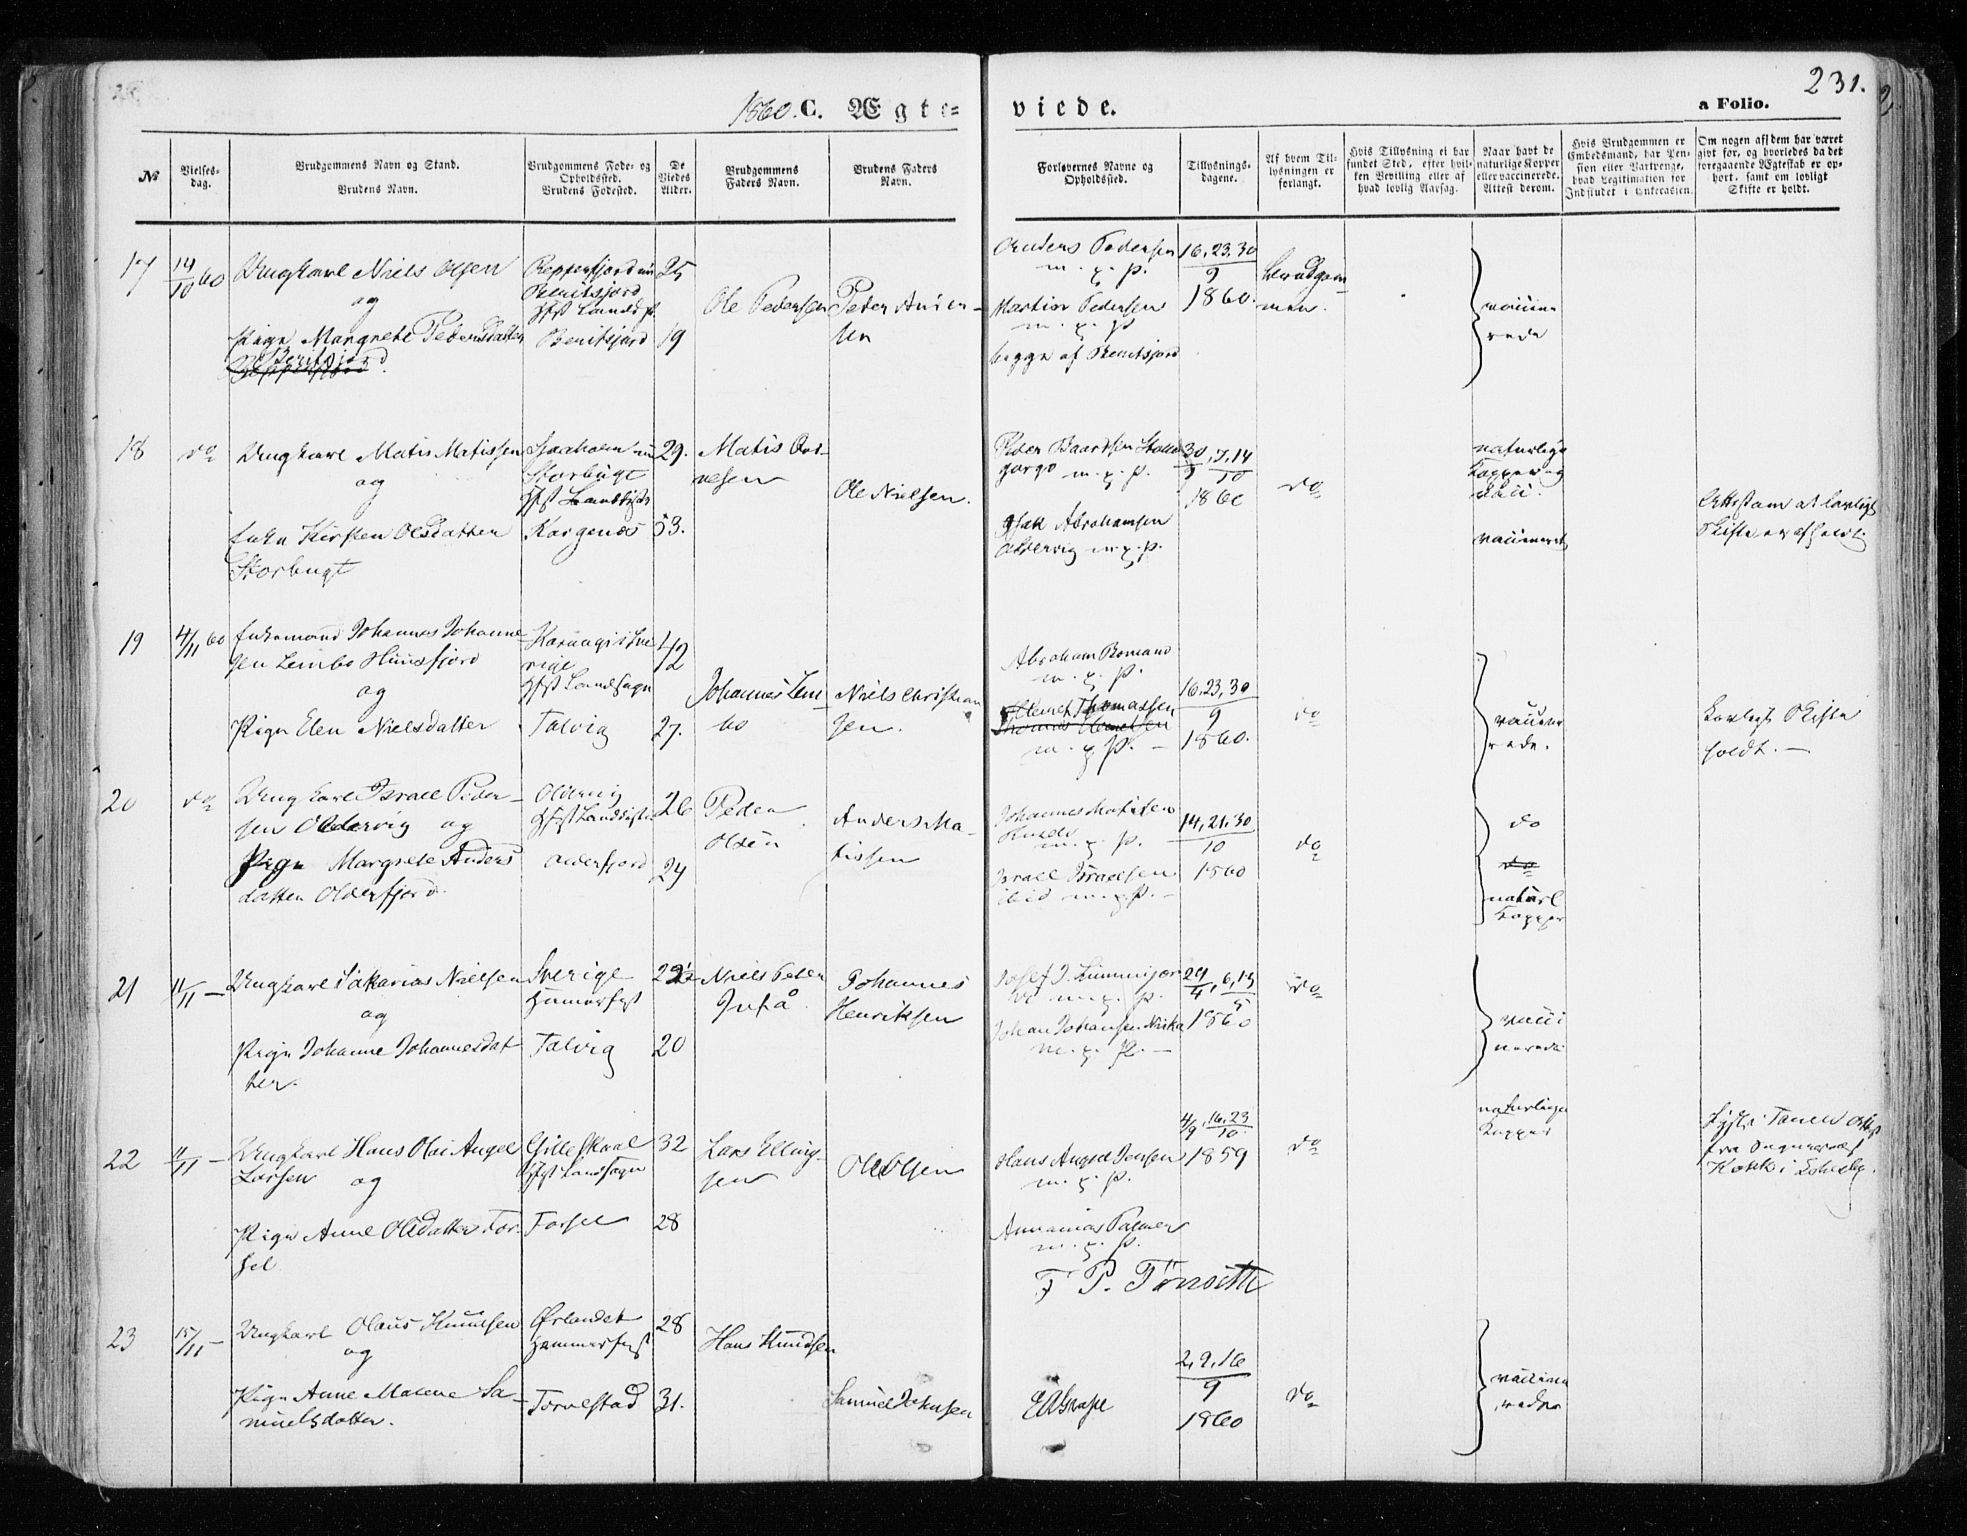 231.
1860. C. Ægte=
viede.
a Folio.
No
Vielses-
dag.
Brudgommens Navn og Stand.
Brudens Navn.
Brudgommens Føde- og
Opholdssted.
Brudens Fødested.
De
Viedes
Alder.
Brudgommens
Faders Navn.
Brudens Faders
Navn.
Forlovernes Navne og
Opholdssted.
Tillysnings-
dagene.
Af hvem Til-
lysningen er
forlangt.
Hvis Tillysning ei har
fundet Sted, efter hvil-
ken Bevilling eller af
hvad lovlig Aarsag.
Naar havt de
naturlige Kopper
eller vaccinerede.
Attest derom.
Hvis Brudgommen er
Embedsmand, har Pen-
sion eller Vartpenge,
hvad Legitimation for
Indskudet i Enkecassen.
Om nogen af dem har været
gift før, og hvorledes da det
foregaaende Ægteskab er op-
hørt, samt om lovligt
Skifte er holdt.
17
14/10 60
Ungkarl Niels Olsen
og
Pige Margrete Pedersdatter
Beritsjord
Repperfjord nu
Beritsjord
Hfst Landds.
Beritsjord
25
19
Ole Pedersen
Peder Ander-
sen
Anders Pedersen
m. p. p.
Martin Pedersen
m. p. p.
begge af Beritsjord
16, 23, 30
9
1860.
Brudgom-
men.
vaccine
rede
18
do
Ungkarl Matis Matissen
og
Enke Kirsten Olsdatter
Storbugt
Storbugt
Kargenæs
29.
53.
Matis
Ole Nielsen.
Peder Baardsen
m. p. p.
Isak Abrahamsen
Oldervig m. p. p.
30/9, 7, 14/10
1860
do
naturlige
Kopper og
vacc.
vaccineret
Skifte er afholdt
19
4/11 60
Enkemand Johannes Johanne-
sen Lembo
og
Pige Elen Nielsdatter
Karungi i Sve-
rige
Hfst Landsogn
Talvig
42
27.
Johannes Lem-
bo
Niels Christian
sen.
Abraham Romand
m. p. p.
Clemet Thomassen
m. p. p. -
16, 23, 30
9
1860.
do
vaccine
rede.
Lovligt Skifte
holdt. -
20
do
Ungkarl Israel Peder-
sen Oldervig og
Pige Margrete Anders
datter Olderfjord.
Oldervig
Olderfjord
26
24
Peder
Olsen
Anders Ma-
tissen
Johannes Matisen
m. p. p.
Israel Israelsen
ibid m. p. p. -
14, 21, 30
10
1860
do
do
do
naturl
Kopper
21
11/11 -
Ungkarl Sakarias Nielsen
og
Pige Johanne Johannesdat-
ter.
Sverige
Hamerfest
Talvig
20
Niels Peder
Johannes
Henriksen
Josef J.
m. p. p.
m. p. p. -
29/4, 6, 13/5
1860
do
vacci
nerede
22
11/11 -
Ungkarl Hans Olai Angel
Larsen og
Pige Anne Olsdatter For-
søl.
Gilleskaal
Hfst Landsogn
Forsøl
32
28
Lars Elling-
sen
Ole Olsen
Hans Angel Jensen
m. p. p.
Annanias Palmer
m. p. p.
F. P. Tönseth
4/9, 16, 23/10.
1859
do
naturlige
Kopper
23
15/11 -
Ungkarl Olaus Knudsen
og
Pige Anne Malene Sa-
muelsdatter.
Ørlandet
Hammerfest
Torvestad
28
31.
Hans Knudsen
Samuel Johnsen
2, 9, 16
9
1860
do
vaccine
rede